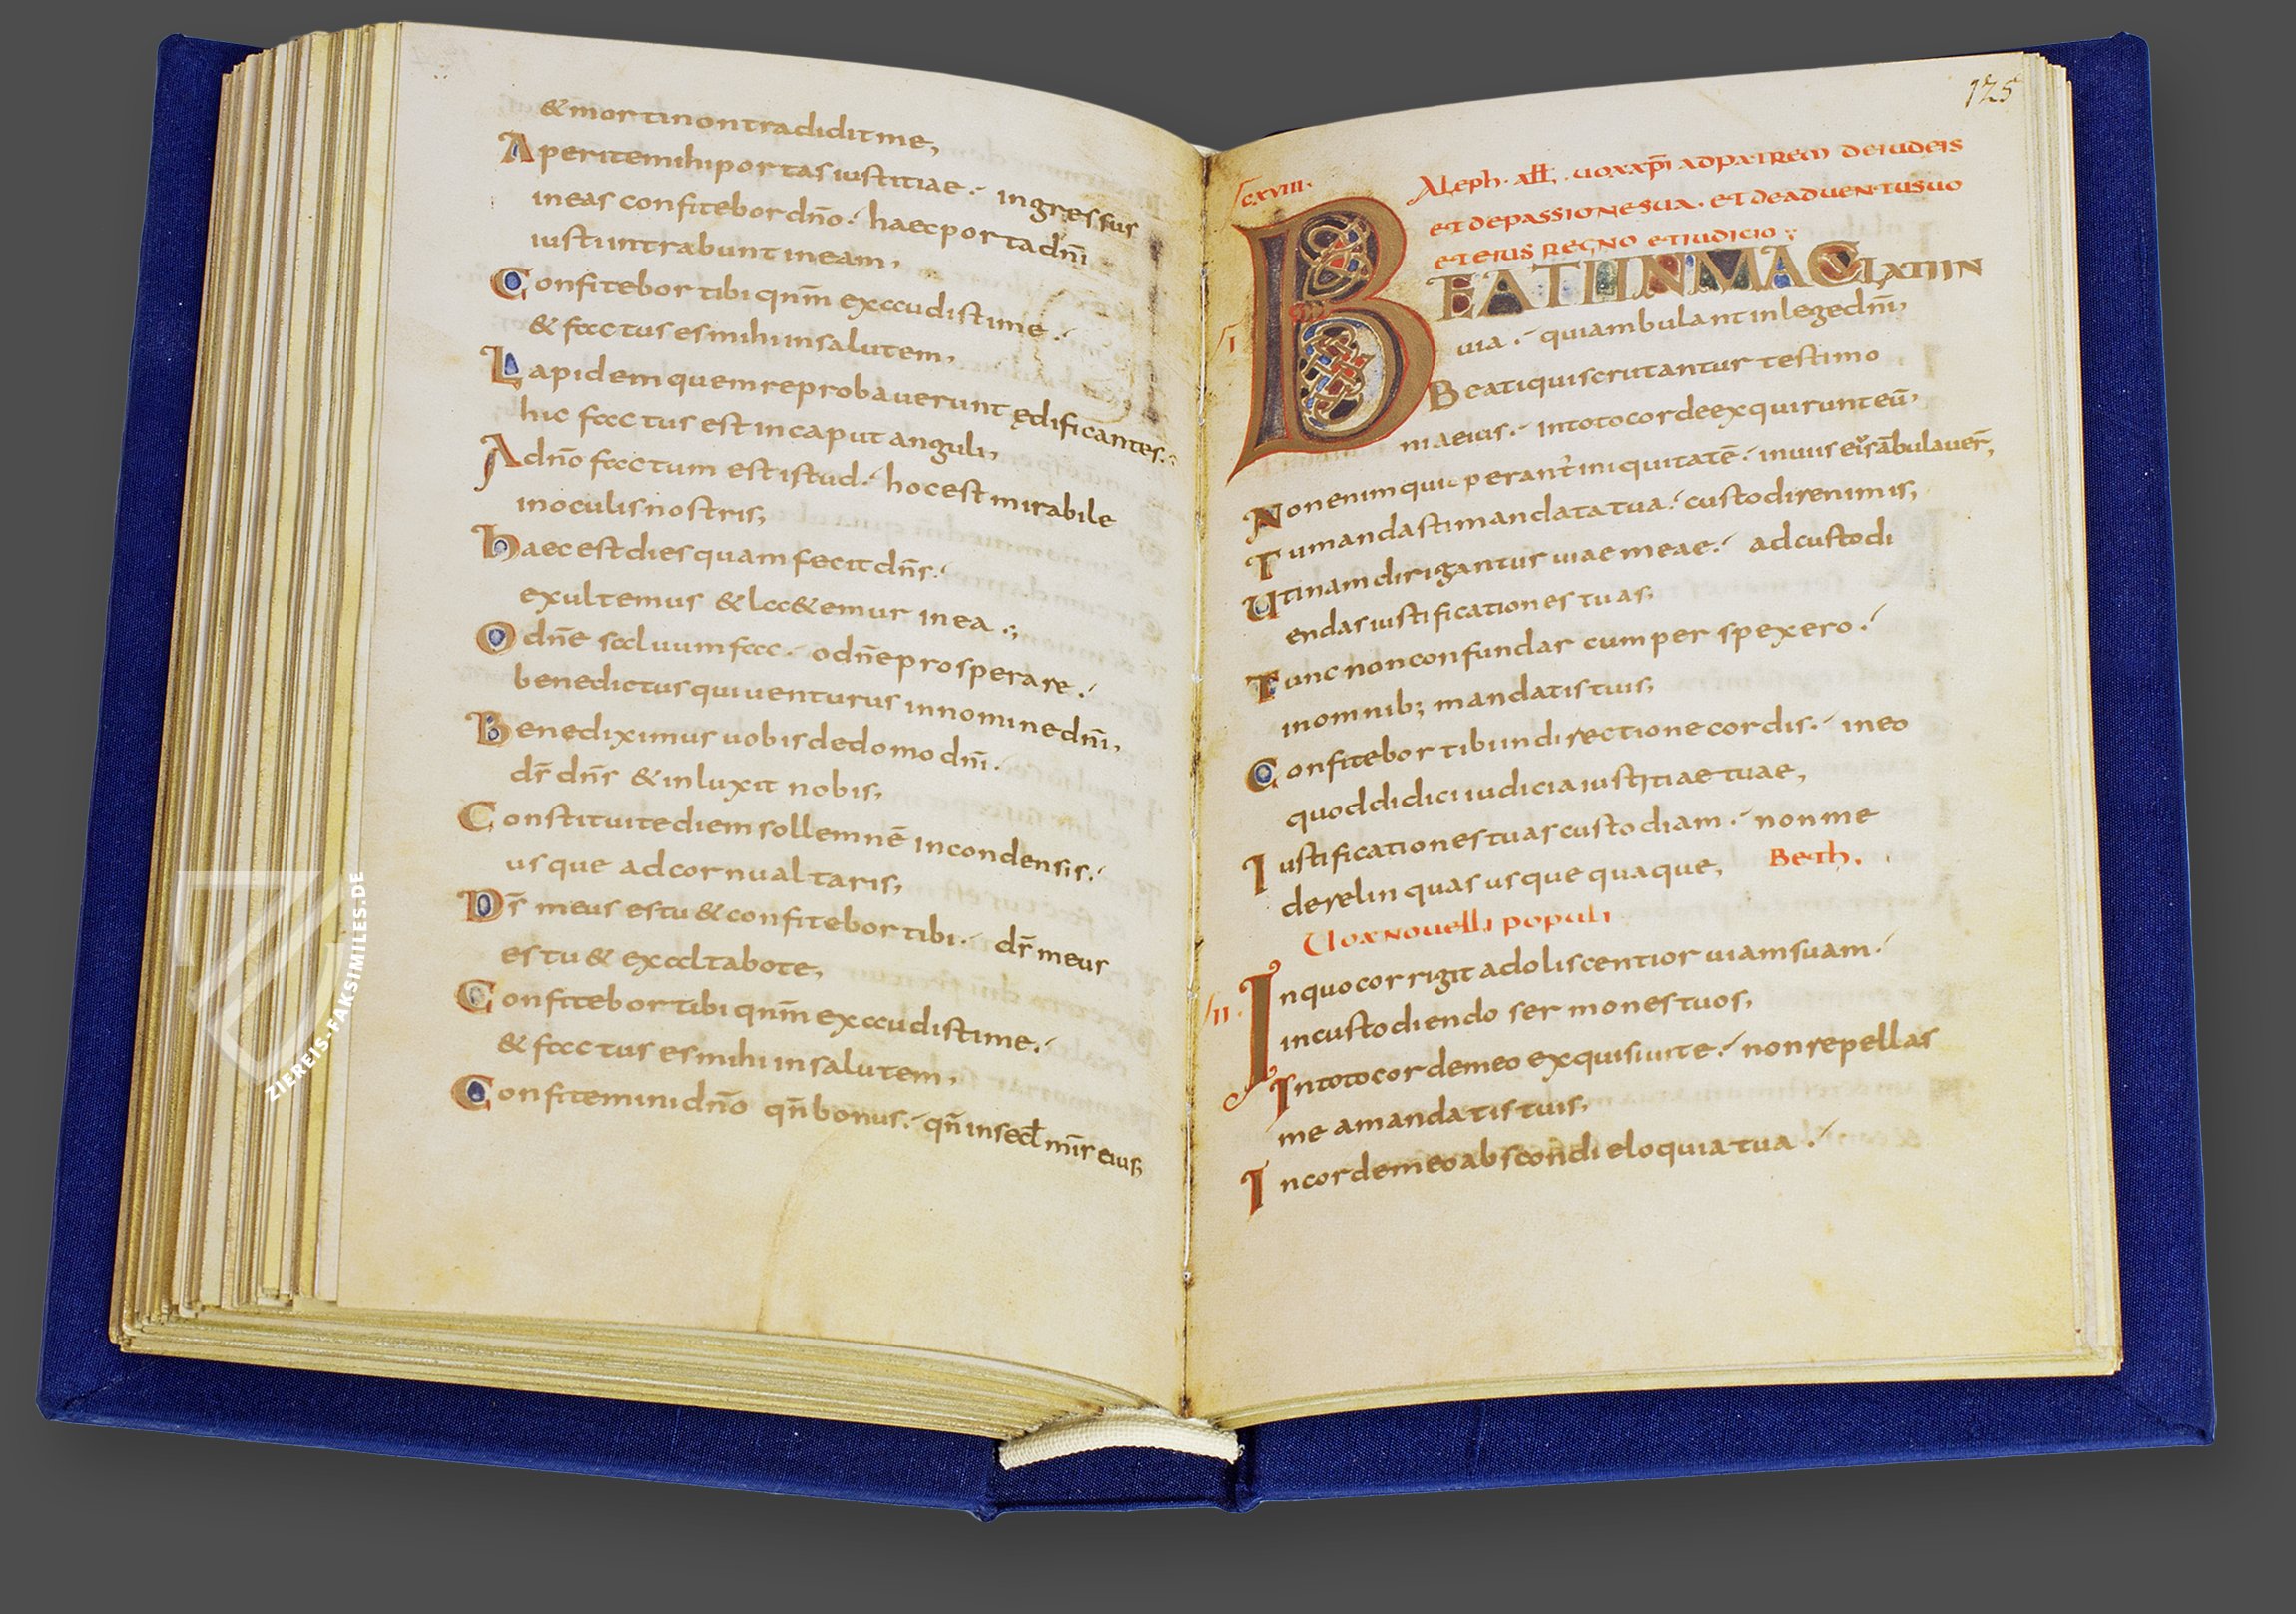 & morti non tradidit me,
Aperite mihi portas iustitiae· ingressus
in eas confitebor dño· haec porta dñi
iusti intrabunt in eam,
Confitebor tibi qnm̄ exaudisti me·
& factus es mihi in salutem,
Lapidem quem reprobauerunt ędificantes·
hic factus est in caput anguli,
A dño factum est istud· hoc est mirabile
in oculis nostris;
haec est dies quam fecit dñs·
exultemus & laetemur in ea ·;
O dñe saluum fac· o dñe prosperare·
benedictus qui uenturus in nomine dñi,
Benediximus uobis de domo dñi·
dr̄ dñs & inluxit nobis,
Constituite diem sollemnē in condensis·
usque ad cornu altaris,
Ds̄ meus es tu & confitebor tibi· ds̄ meus
es tu & exaltabo te,
Confitebor tibi qnm̄ exaudisti me·
& factus es mihi in salutem,
Confitemini dño qn̄ bonus· qn̄ in secl̄ mīs eius;
ZIEREIS-FAKSIMILES.DE
125
CXVIII·
Aleph· all; uox xp̄i ad patrem de iudeis
et de passione sua· et de aduentu suo
et eius regno et iudicio
I
BEATI INMACULATI IN
uia· qui ambulant in lege dñi,
Beati qui scrutantur testimo
nia eius· in toto corde exquirunt eū,
Non enim qui operant̄ iniquitatē· in uiis ei᷒ ābulauer̄,
Tu mandasti mandata tua· custodire nimis,
Utinam dirigantur uiae meae· ad custodi
endas iustificationes tuas;
Tunc non confundar cum perspexero·
in omnib; mandatis tuis;
Confitebor tibi in directione cordis· in eo
quod didici iudicia iustitiae tuae,
Iustificationes tuas custodiam· non me
derelinquas usquequaque, Beth.
Uox nouelli populi
II·
In quo corrigit adoliscentior uiam suam·
in custodiendo sermones tuos,
In toto corde meo exquisiui te· non repellas
me a mandatis tuis,
In corde meo abscondi eloquia tua·